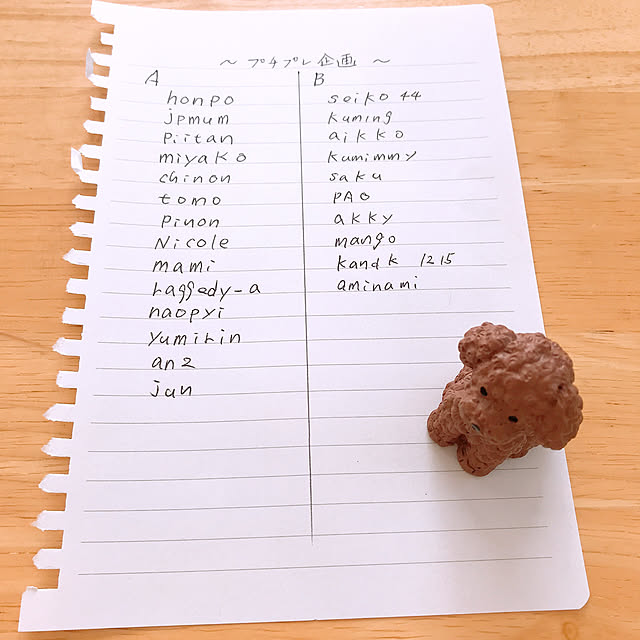 ～ プチプレ企画 ～
A
honpo
jpmum
Piitan
miyako
chinon
tomo
pinon
Nicole
mami
raggedy-a
naopyi
yumirin
an2
jun
B
seiko44
kuming
aikko
kumimmy
saku
PAO
akky
mango
kandk 1215
aminami